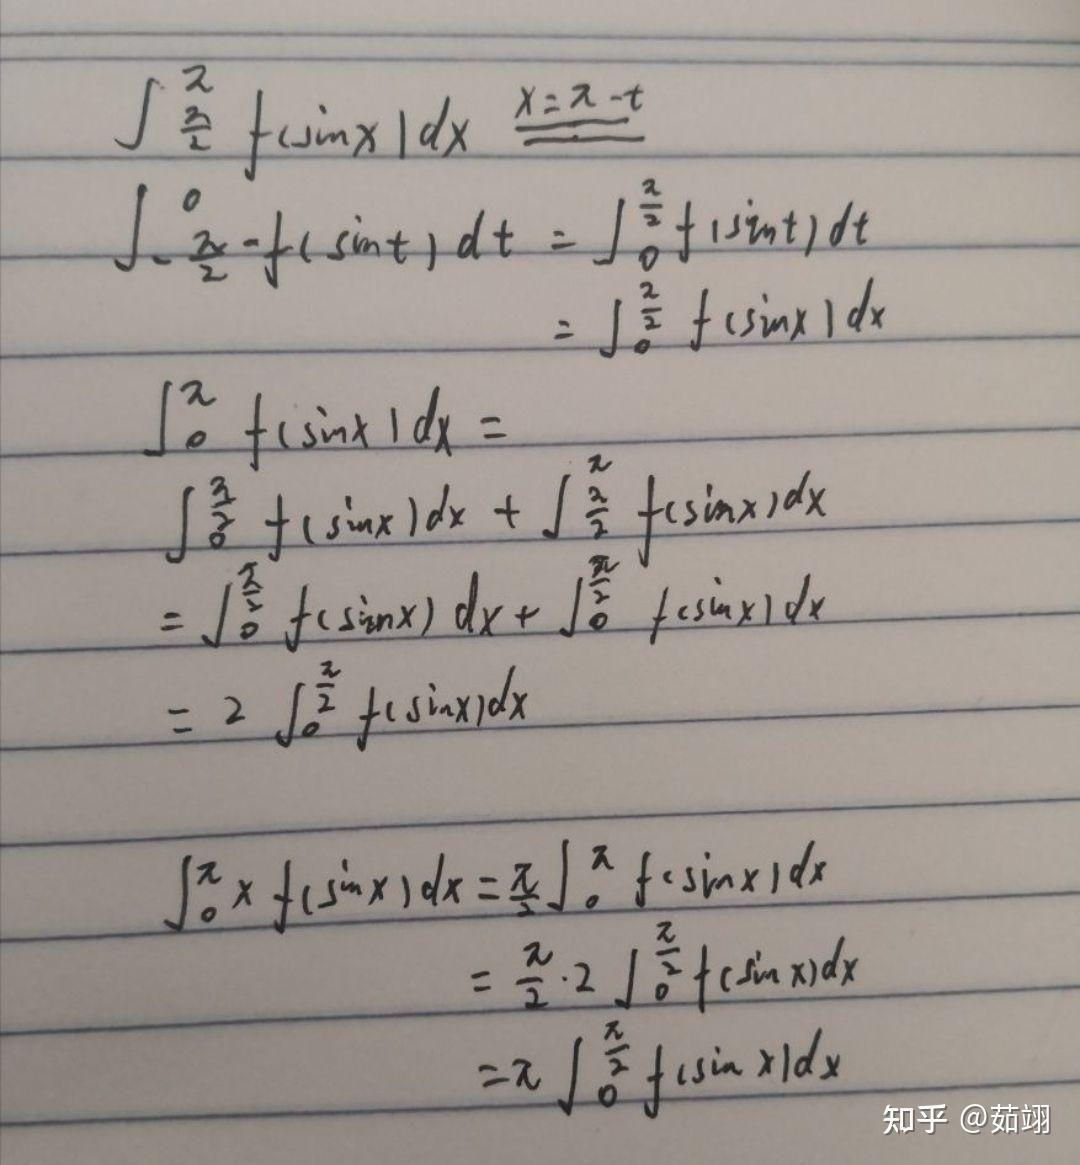 ∫_{π/2}^{π} f(sinx)dx x=π-t
∫_{-π/2}^{0} -f(sint)dt = ∫_{0}^{π/2} f(sint)dt
= ∫_{0}^{π/2} f(sinx)dx
∫_{0}^{π} f(sinx)dx =
∫_{0}^{π/2} f(sinx)dx + ∫_{π/2}^{π} f(sinx)dx
= ∫_{0}^{π/2} f(sinx)dx + ∫_{0}^{π/2} f(sinx)dx
= 2 ∫_{0}^{π/2} f(sinx)dx
∫_{0}^{π} x f(sinx)dx = π/2 ∫_{0}^{π} f(sinx)dx
= π/2 · 2 ∫_{0}^{π/2} f(sinx)dx
= π ∫_{0}^{π/2} f(sinx)dx
知乎 @茹翊